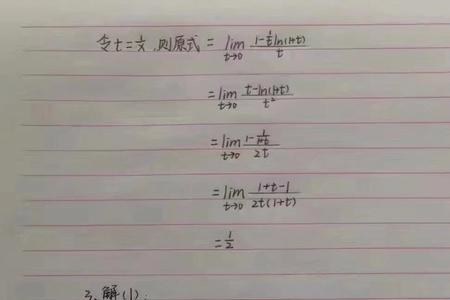 令t=1/x,则原式 = lim_{t→0} (1-(1/t)ln(1+t))/t
= lim_{t→0} (t-ln(1+t))/t²
= lim_{t→0} (1-1/(1+t))/(2t)
= lim_{t→0} (1+t-1)/(2t(1+t))
= 1/2
3. 解(1):